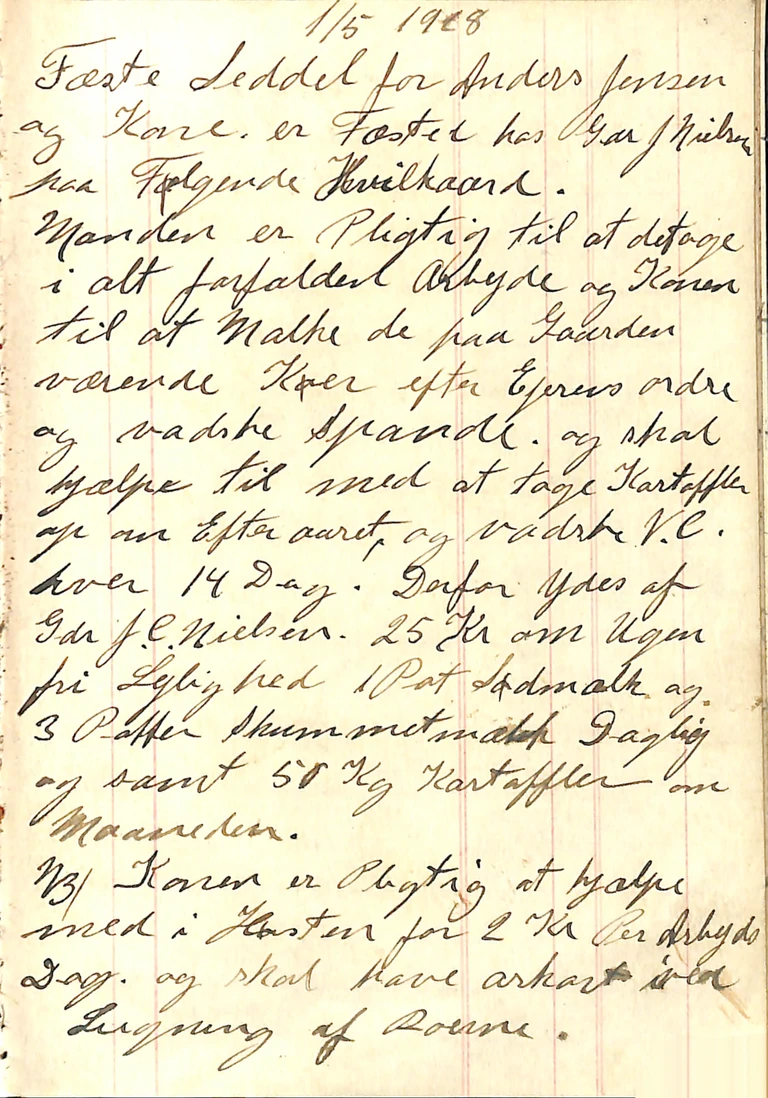 1/5 1918
Fæste Seddel for Anders Jensen
og Kone. er Fæsted hos Gdr J Nielsen
paa Følgende Hvilkaard.
Manden er Pligtig til at deltage
i alt forfaldent Arbyde og Konen
til at Malke de paa Gaarden
værende Køer efter Ejerens ordre
og vadske Spande. og skal
hjælpe til med at tage Kartoffler
op om Efteraaret, og vadske V.C.
hver 14 Dag. Derfor Ydes af
Gdr J.C. Nielsen. 25 Kr om Ugen
fri Lejlighed 1 Pot Sødmælk og
3 Potter Skummetmælk Daglig
og samt 50 Kg Kartoffler om
Maaneden.
NB/ Konen er Pligtig at hjælpe
med i Høsten for 2 Kr Per Arbyds
Dag. og skal have arkort ved
Lugning af Roerne.